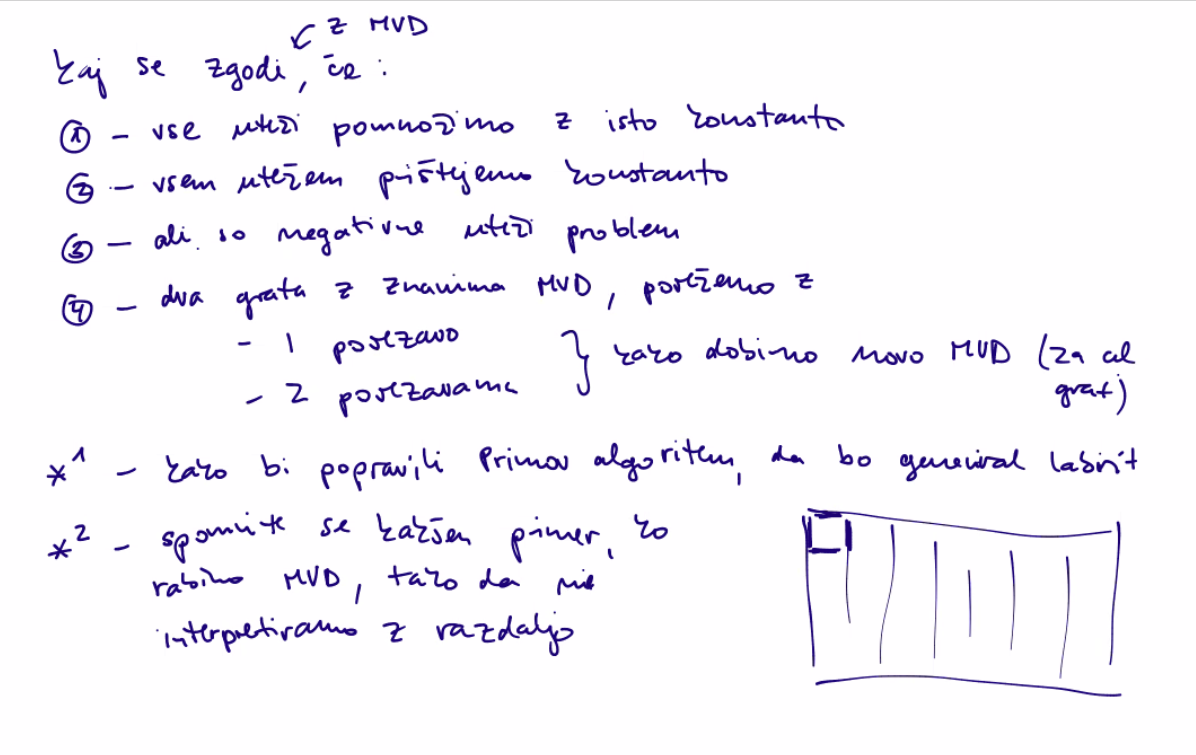 z MVD
Kaj se zgodi, če:
① - vse uteži pomnožimo z isto konstanto
② - vsem utežem prištejemo konstanto
③ - ali so negativne uteži problem
④ - dva grafa z znanima MVD, povežemo z
- 1 povezavo
- 2 povezavama } kako dobimo novo MVD (za cel
graf)
*1 - kako bi popravili Primov algoritem, da bo generiral labirint
*2 - spomnite se kakšen primer, ko
rabimo MVD, tako da ne
interpretiramo z razdaljo